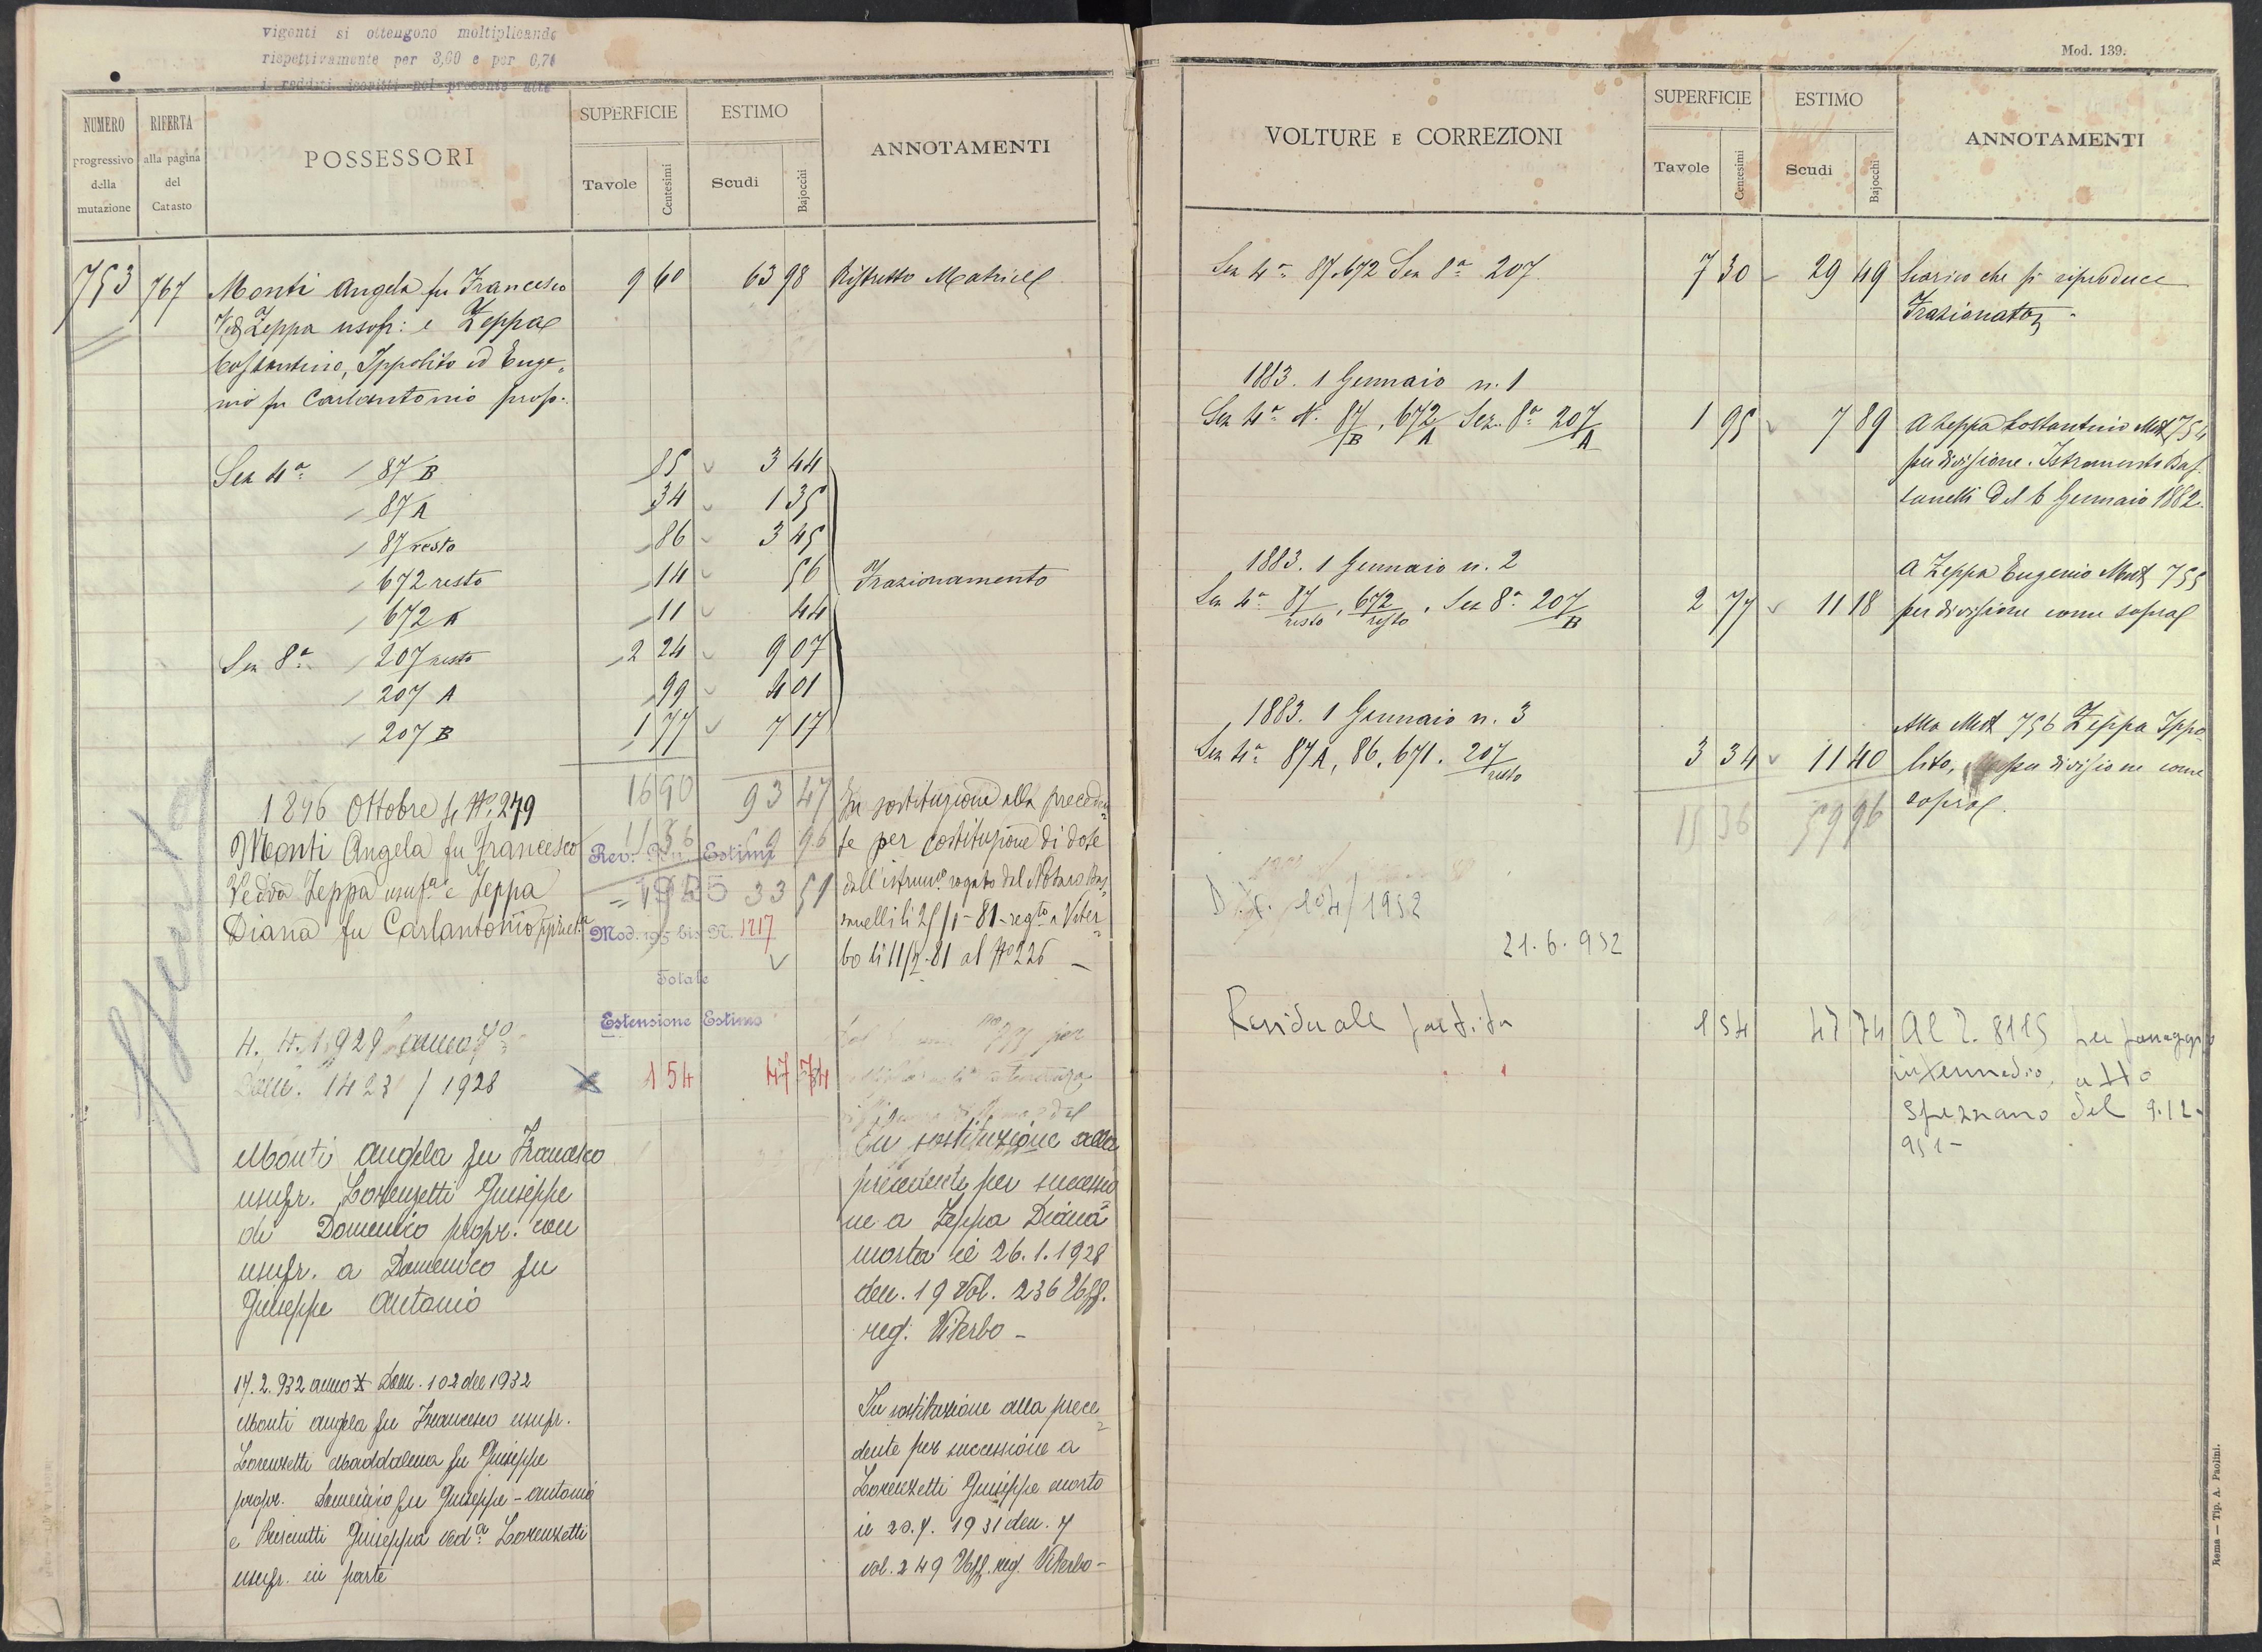 vigenti si ottengono moltiplicando
rispettivamente per 3,60 e per 0,7
i redditi iscritti nel presente atto
NUMERO
progressivo
della
mutazione
RIFERTA
alla pagina
del
Catasto
POSSESSORI
SUPERFICIE
Tavole
Centesimi
ESTIMO
Scudi
Bajocchi
ANNOTAMENTI
753 767 Monti Angela fu Francesco 9 60 63 98 Ristretto Matrice
Ved. Zeppa usofr: e Zeppa
Costantino, Ippolito ed Euge-
nio fu Carlantonio prop.
Sez 4a 87 B 85 3 44
87 A 34 1 35
87 resto 86 3 45
672 resto 14 56 Frazionamento
672 A 11 44
Sez 8a 207 resto 2 24 9 07
207 A 99 4 01
207 B 1 77 7 17
16 90 93 47
1896 Ottobre No. 279 In sostituzione alla preceden-
Monti Angela fu Francesco te per costituzione di dote
Rev. Gen. Estimi
Vedva Zeppa usufa e Zeppa 33 51 dall'istrumo rogato dal Notaro Bas-
Diana fu Carlantonio
Mod. 195 bis N. 1217
sanelli li 25/1-81-regto a Viter-
bo li 11/2-81 al No 226
Totale
Estensione Estimo
4. 4. 1929 anno 7o
Dom. 1423 / 1928 1 54 47 74
Monti Angela fu Francesco In sostituzione alla
usufr. Lorenzetti Giuseppe precedente per successio
di Domenico propr. con ne a Zeppa Diana
usufr. a Domenico fu morta il 26.1.1928
Giuseppe Antonio den. 19 Vol. 236 Uff.
reg. Viterbo -
17.2.932 anno X Dom. 102 del 1932
Monti Angela fu Francesco usufr. In sostituzione alla prece
Lorenzetti Maddalena fu Giuseppe dente per successione a
propr. Domenico fu Giuseppe-Antonio Lorenzetti Giuseppe morto
e Presciutti Giuseppa veda Lorenzetti il 20.7.1931 den. 7
usufr. in parte vol. 249 Uff. reg. Viterbo-
Mod. 139.
VOLTURE E CORREZIONI
SUPERFICIE
Tavole
Centesimi
ESTIMO
Scudi
Bajocchi
ANNOTAMENTI
Sez 4a 87.672 Sez 8a 207 7 30 29 49 Scarico che si riproduce
Frazionato
1883. 1 Gennaio n. 1
Sez 4a N. 87/B, 672/A Sez. 8a 207/A 1 95 7 89 A Zeppa Costantino Mut 754
per divisione. Istromento Bas-
sanelli del 6 Gennaio 1882.
1883. 1 Gennaio n. 2 A Zeppa Eugenio Mut 755
Sez 4a 87/resto, 672/resto, Sez 8a 207/B 2 77 11 18 per divisione come sopra
1883. 1 Gennaio n. 3 Alla Mut 756 Zeppa Ippo
Sez 4a 87 A, 86, 671. 207/resto 3 34 11 40 lito, per divisione come
sopra
15 36 59 96
104/1952
21.6.952
Residuale partita 1 54 47 74 Al 2. 8115 per passaggio
intermedio, atto
Spezzano del 9.12.
951-
Roma — Tip. A. Paolini.